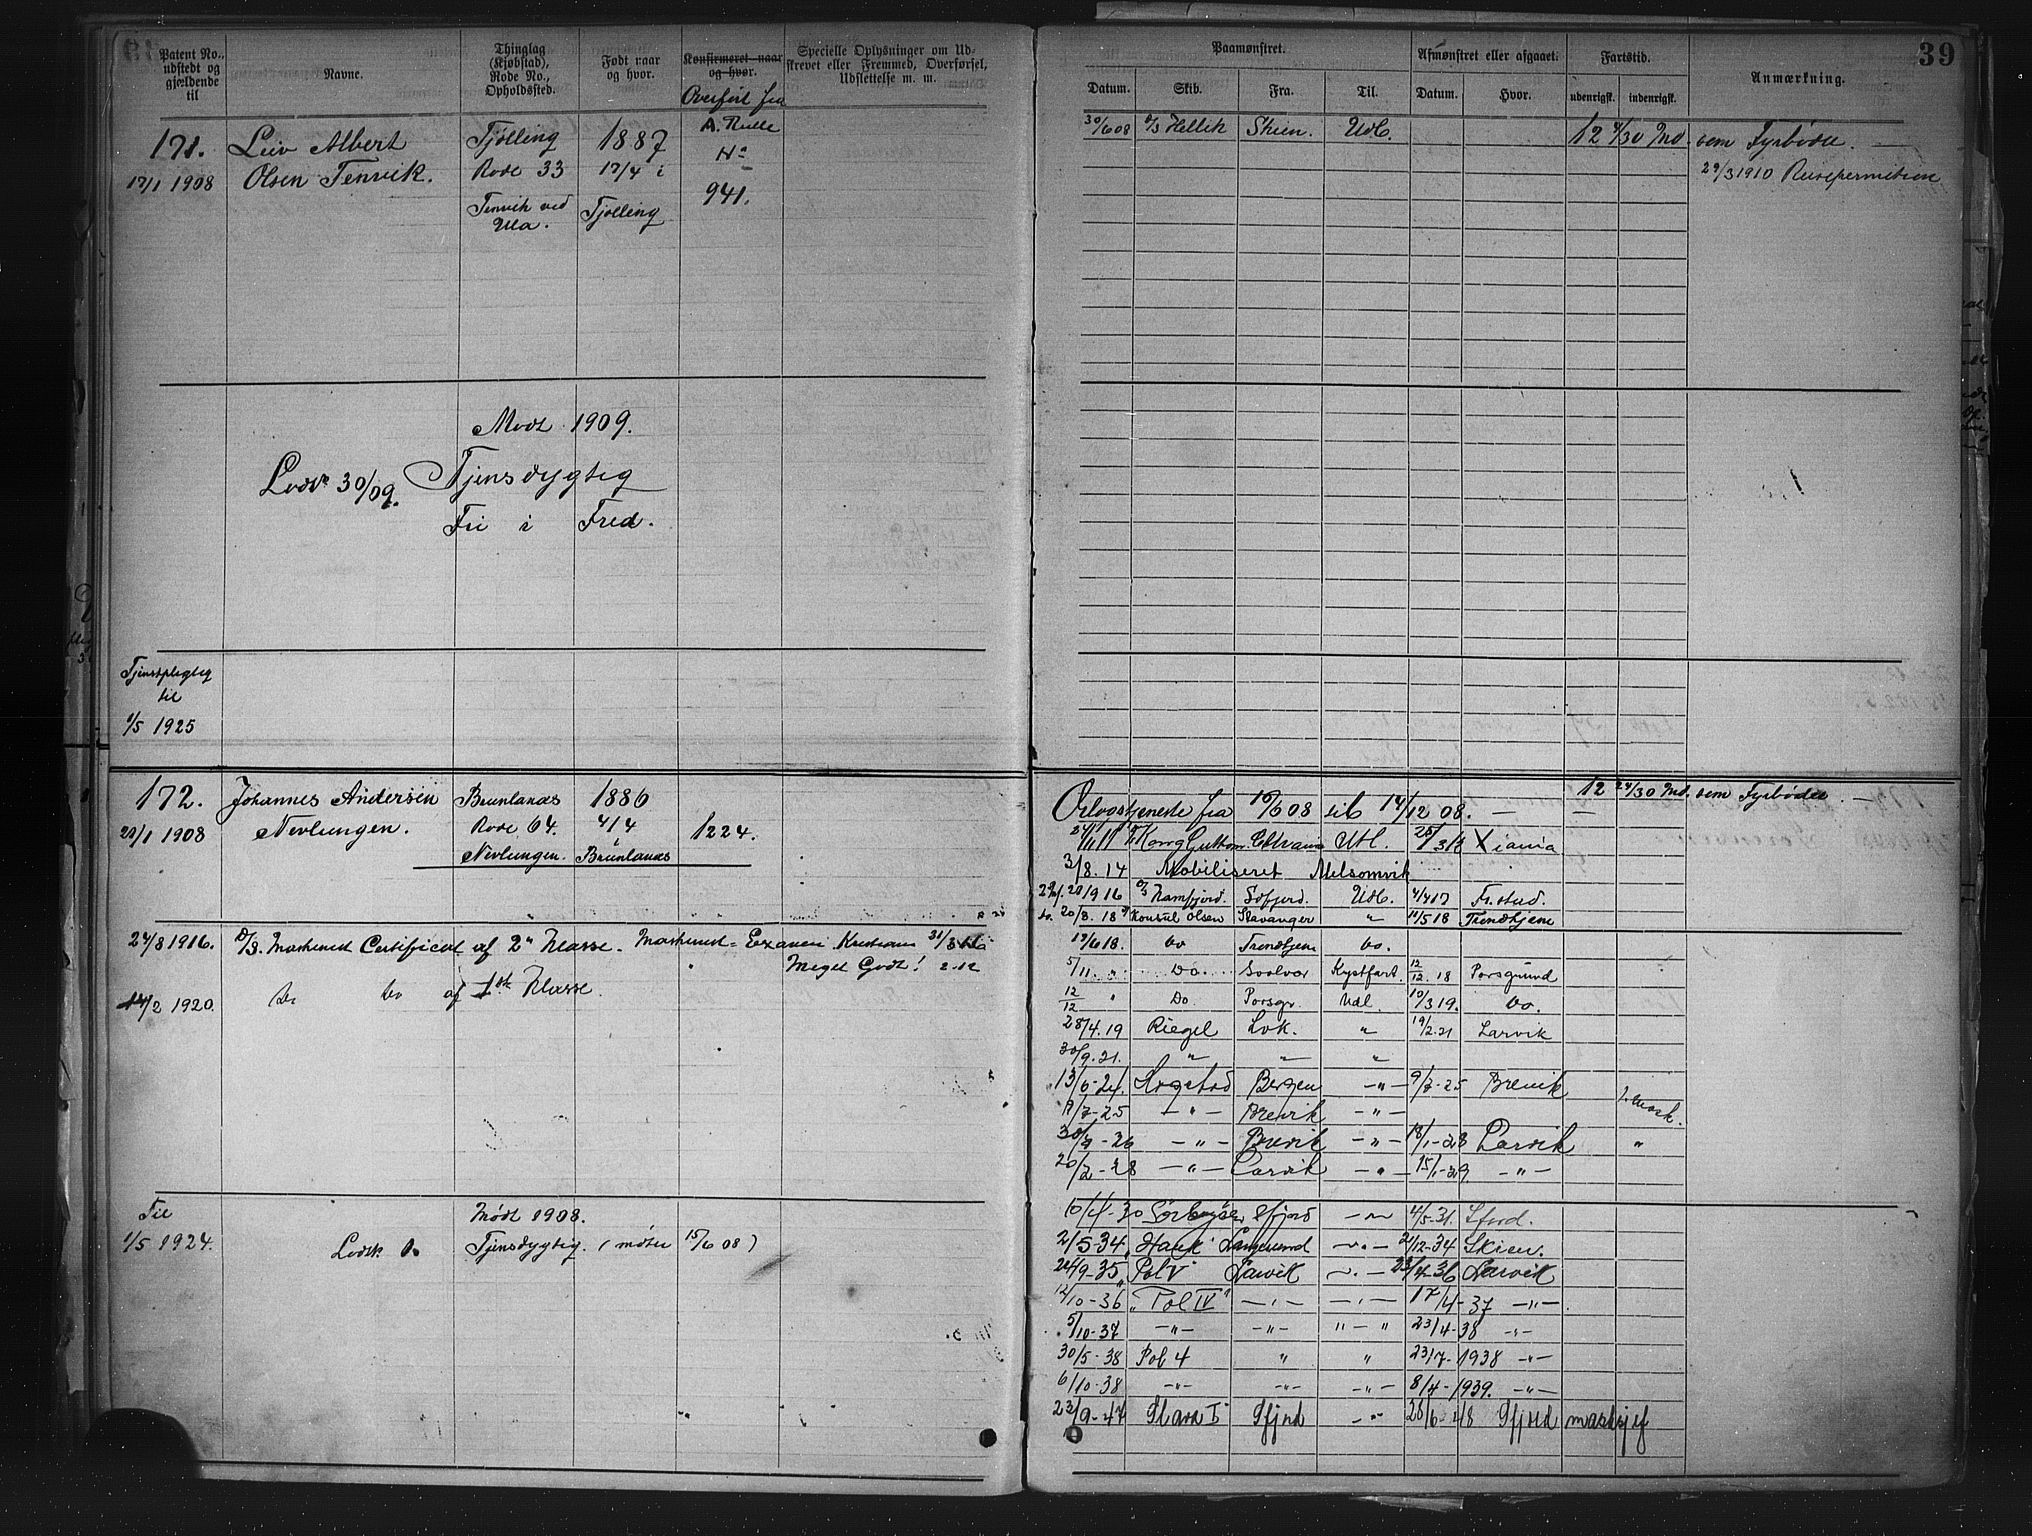 Patent No., udstedt og gjældende til
Navne.
Thinglag (Kjøbstad), Rode No., Opholdssted.
Født naar og hvor.
Konfirmeret naar og hvor.
Overført fra
Specielle Oplysninger om Udskrevet eller Fremmed, Overførsel, Udslettelse m. m.
171.
17/1 1908
Leiv Albert
Olsen Tenvik.
Tjølling
Rode 33
Tenvik ved
Ula.
1887
17/4 i
Tjølling
A. Rulle
No
941.
Mødt 1909.
Lodtr 30/09. Tjensdygtig
Fri i Fred.
Tjenstpligtig
til
1/5 1925
172.
Johannes Andersen
Nevlungen.
Brunlanæs
Rode 64.
Nevlungen.
1886
4/4
i
Brunlanæs
1224.
24/8 1916. D/S. Maskinist Certificat af 2n Klasse. Maskinist-Examen Kristiania
Meget Godt! 2.12
14/2 1920. Do Do af 1ste Klasse.
Til
1/5 1924.
Mødt 1908.
Tjensdygtig. (møter 15/6 08)
39
Paamønstret.
Afmønstret eller afgaaet.
Fartstid.
Anmærkning.
Datum. Skib. Fra. Til. Datum. Hvor. udenrigsk. indenrigsk.
30/6 08 D/S Hellik Skien. Udl. 12 4/30 Md som Fyrbøder.
29/3 1910 Reisepermission
12 24/30 Md. som Fyrbøder.
Orlogstjeneste fra 15/6 08 til 14/12 08.
Kong Guttorm Udl. Xiania
3/8. 14 Mobiliseret Melsomvik
1916 D/S Ramfjord. Udl. 4/4 17 Fr.stad.
20/3. 18 Konsul Olsen Stavanger " 14/5 18 Trondhjem
17/6 18. Do Trondhjem Do.
5/11. " Do. Svolvær Kystfart 12/12. 18 Porsgrund
12/12 " Do Porsgr. Udl. 10/3 19. Do.
28/4. 19 Riegel Lvk. " 19/2. 21 Larvik
30/9. 21. " " "
13/6-24. Bergen -"- 9/7-25 Brevik
/7-25 -"- Brevik -"-
30/7-26 -"- Brevik -"- 18/1-28 Larvik "
20/2-28 -"- Larvik -"- 15/1-29 -"-
10/4-30 Sfjord -"- 4/5-31. Sfjord.
2/5-34 "Hauk" Langesund -"- 21/12-34 Skien.
24/9-35 "Pol V" Larvik -"- 23/4-36 Larvik
12/10-36 "Pol IV" -"- -"- 17/4-37 -"-
5/10-37 -"- -"- "-" 23/4-38 -"-
30/5-38 Pol 4 " " 23/7-1938 -"-
6/10-38 -"- -"- -"- 8/4-1939. -"-
23/9-47 Thara I Sfjord -"- 28/6-48 Sfjord masksjef